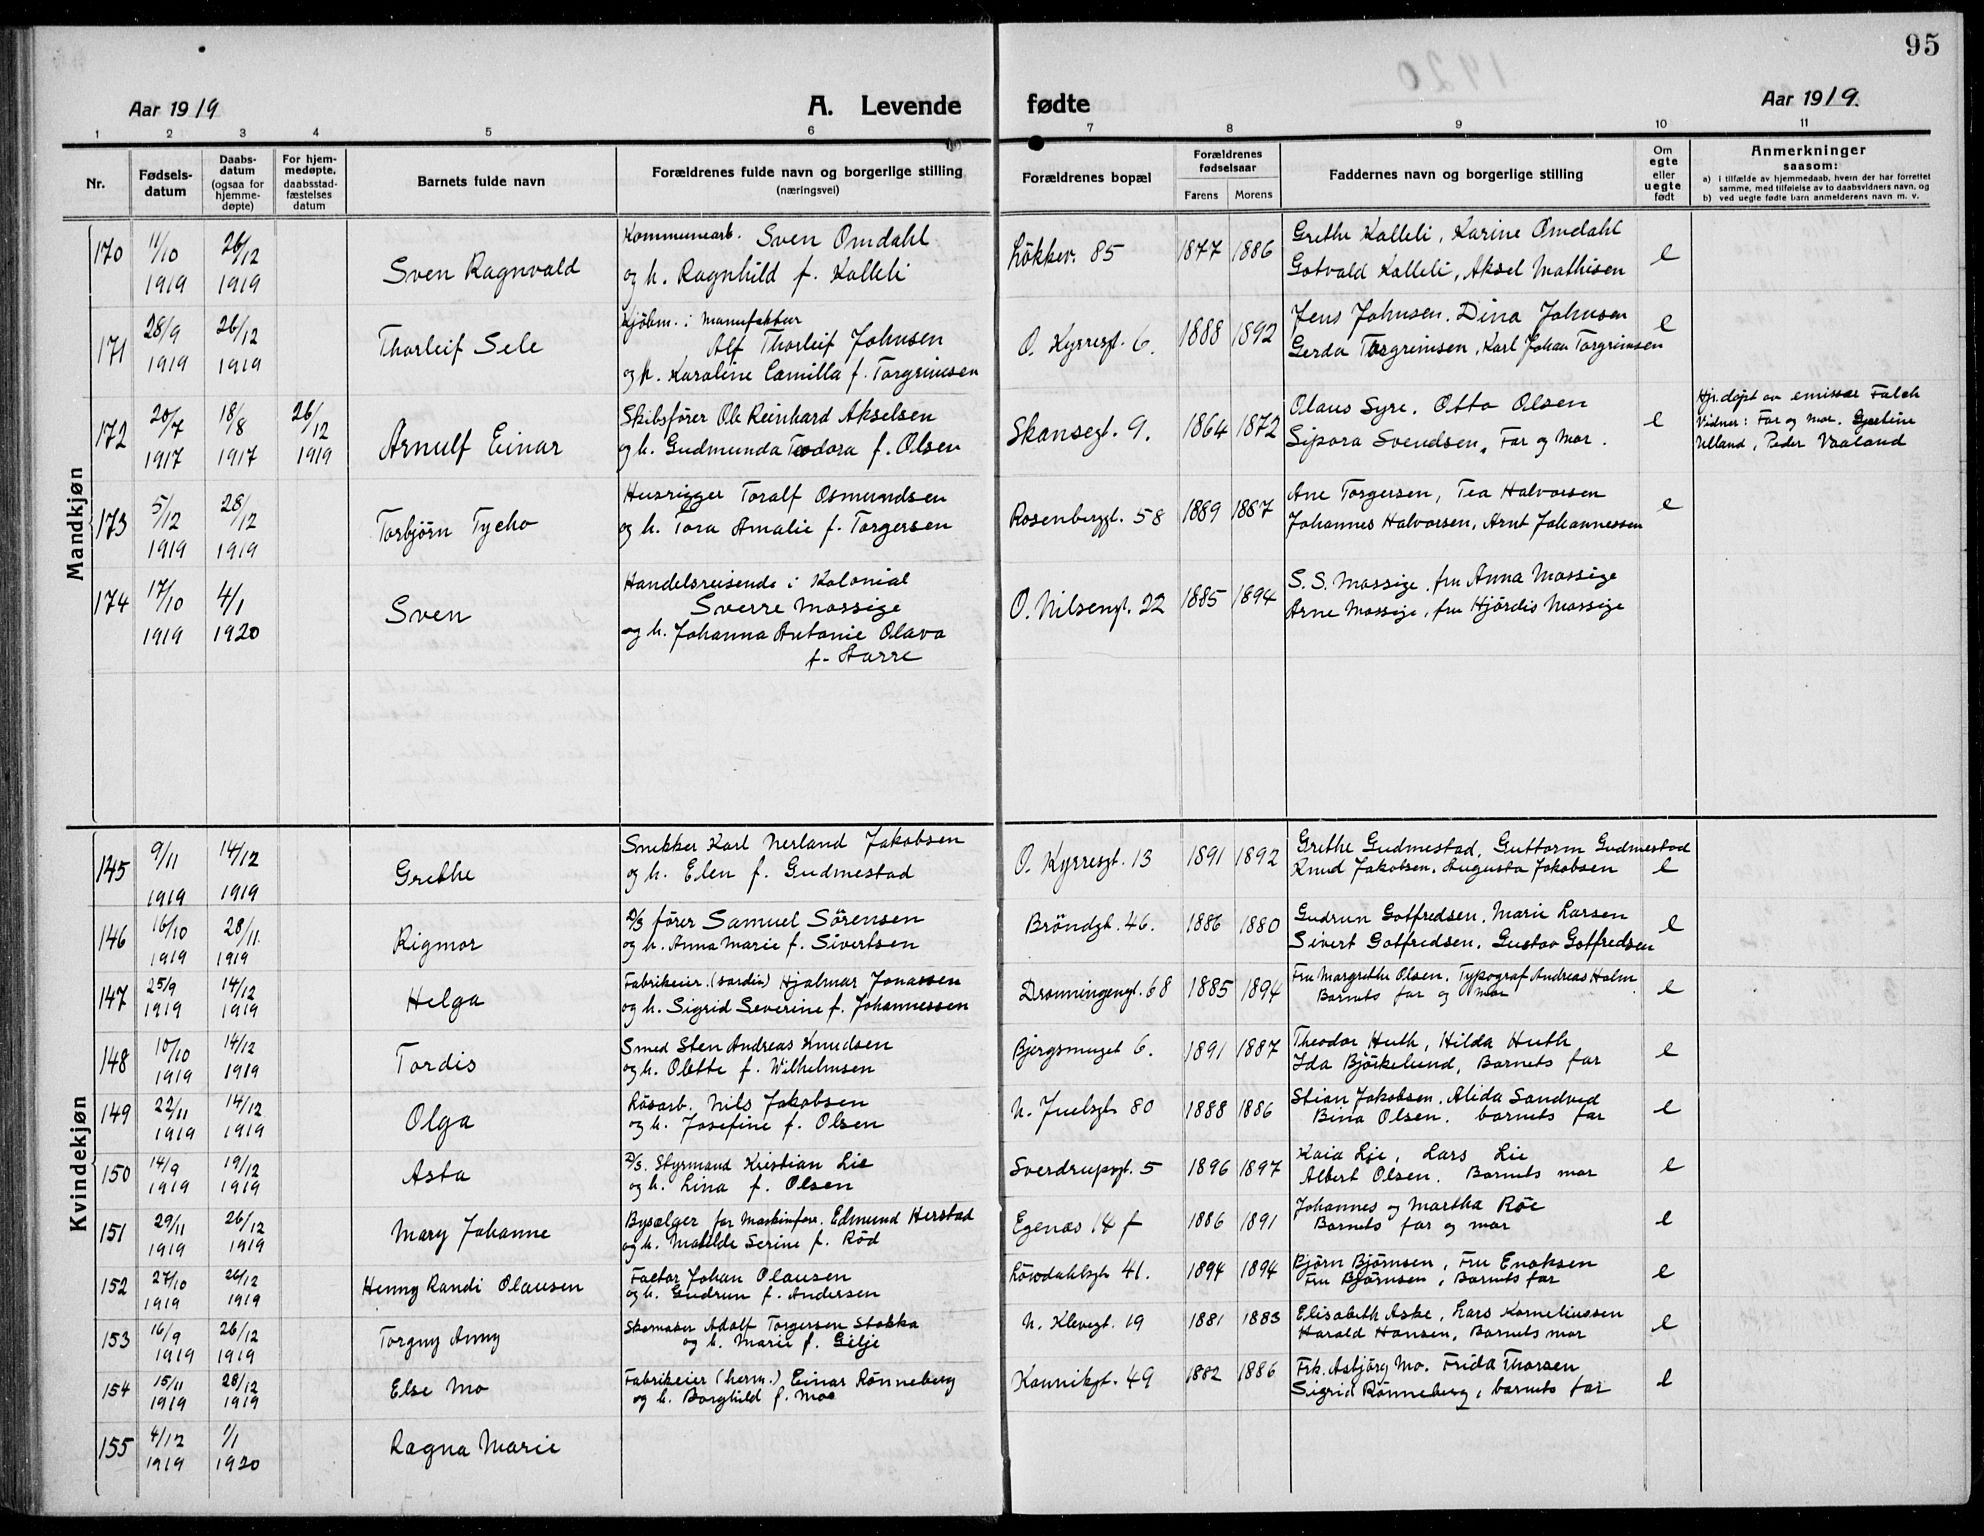 95
1920
Aar 1919
A. Levende fødte
Aar 1919.
1 2 3 4 5 6 7 8 9 10 11
Nr.
Fødselsdatum
Daabsdatum (ogsaa for hjemmedøpte)
For hjemmedøpte, daabsstadfæstelses datum
Barnets fulde navn
Forældrenes fulde navn og borgerlige stilling (næringsvei)
Forældrenes bopæl
Forældrenes fødselsaar
Farens Morens
Faddernes navn og borgerlige stilling
Om egte eller uegte født
Anmerkninger
saasom:
a) i tilfælde av hjemmedaab, hvem der har forrettet samme, med tilføielse av to daabsvidners navn, og
b) ved uegte fødte barn anmelderens navn m. v.
Mandkjøn
170 11/10 1919 26/12 1919
Sven Ragnvald
Kommunearb. Sven Omdahl
og h. Ragnhild f. Kalleli
Løkkev. 85
1877 1886
Grethe Kalleli, Karine Omdahl
Gotvald Kalleli, Aksel Mathisen
e
171 28/9 1919 26/12 1919
Thorleif Sele
Kjøbm. i Manufaktur
Alf Thorleif Johnsen
og h. Karoline Camilla f. Torgrimsen
O. Kyrresgt. 6.
1888 1892
Jens Johnsen. Dina Johnsen
Gerda Torgrimsen, Karl Johan Torgrimsen
e
172 20/7 1917 18/8 1917 26/12 1919
Arnulf Einar
Skibsfører Ole Reinhard Akselsen
og h. Gudmunda Teodora f. Olsen
Skansegt. 9.
1864 1872
Olaus Syre. Otto Olsen
Sipora Svendsen, Far og Mor.
e
Hj. døpt av emissær Falch
Vidner: Far og mor. Gjertine
Ulland, Peder Vaaland
173 5/12 1919 28/12 1919
Torbjørn Tycho
Husrigger Toralf Osmundsen
og h. Tora Amalie f. Torgersen
Rosenberggt. 58
1889 1887
Ane Torgersen, Tea Halvorsen
Johannes Halvorsen, Arnt Johannessen
e
174 17/10 1919 4/1 1920
Sven
Handelsreisende i Kolonial
Sverre Massige
og h. Johanna Antonie Olava
f. Aarre
O. Nilsengt. 22
1885 1894
S. S. Massige, fru Anna Massige
Arne Massige, fru Hjördis Massige
Kvindekjøn
145 9/11 1919 14/12 1919
Grethe
Snekker Karl Nerland Jakobsen
og h. Elen f. Gudmestad
O. Kyrresgt. 13
1891 1892
Grethe Gudmestad, Guttorm Gudmestad
Knud Jakobsen. Augusta Jakobsen
e
146 16/10 1919 28/11. 1919
Rigmor
D/S fører Samuel Sørensen
og h. Anna Marie f. Sivertsen
Brøndgt. 46.
1886 1880
Gudrun Gotfredsen, Marie Larsen
Sivert Gotfredsen. Gustav Gotfredsen
e
147 25/9 1919 14/12 1919
Helga
Fabrikeier. (sardin) Hjalmar Jonassen
og h. Sigrid Severine f. Johannessen
Dronningensgt. 68
1885 1894
Fru Margrethe Olsen. Typograf Andreas Holm
Barnets far og mor
e
148 10/10 1919 14/12 1919
Tordis
Smed Sten Andreas Knudsen
og h. Olette f. Wilhelmsen
Bjergsmuget 6.
1891 1887
Theodor Huth, Hilda Huth
Ida Björkelund, Barnets far
e
149 22/11 1919 14/12 1919
Olga
Løsarb. Nils Jakobsen
og h. Josefine f. Olsen
N. Juelsgt. 80
1888 1886
Stian Jakobsen. Alida Sandved
Bina Olsen. barnets far
e
150 14/9 1919 19/12 1919
Asta
D/S. Styrmand Kristian Lie
og h. Lina f. Olsen
Sverdrupsgt. 5
1896 1897
Kaia Lie, Lars Lie
Albert Olsen. Barnets mor
e
151 29/11 1919 26/12 1919
Mary Johanne
Bysælger for Maskinforr. Edmund Herstad
og h. Matilde Serine f. Röd
Egenæs 14 f
1886 1891
Johannes og Martha Röe
Barnets far og mor
e
152 27/10 1919 26/12 1919
Henny Randi Olausen
Factor Johan Olausen
og h. Gudrun f. Andersen
Løwdahlsgt. 41.
1894 1894
Bjørn Bjørnsen, Fru Enoksen
Fru Bjørnsen, Barnets far
e
153 16/9 1919 26/12 1919
Torgny Anny
Skomaker Adolf Torgersen Stokka
og h. Marie f. Gilje
N. Klevegt. 19
1881 1883
Elisabeth Aske, Lars Korneliussen
Harald Hansen, Barnets mor
e
154 15/11 1919 28/12 1919
Else Mo
Fabrikeier (herm.) Einar Rønneberg
og h. Borghild f. Moe
Kannikgt. 49
1882 1886
Frk. Asbjørg Mo. Frida Thorsen
Sigrid Rønneberg, barnets far
e
155 4/12 1919 1/1 1920
Ragna Marie